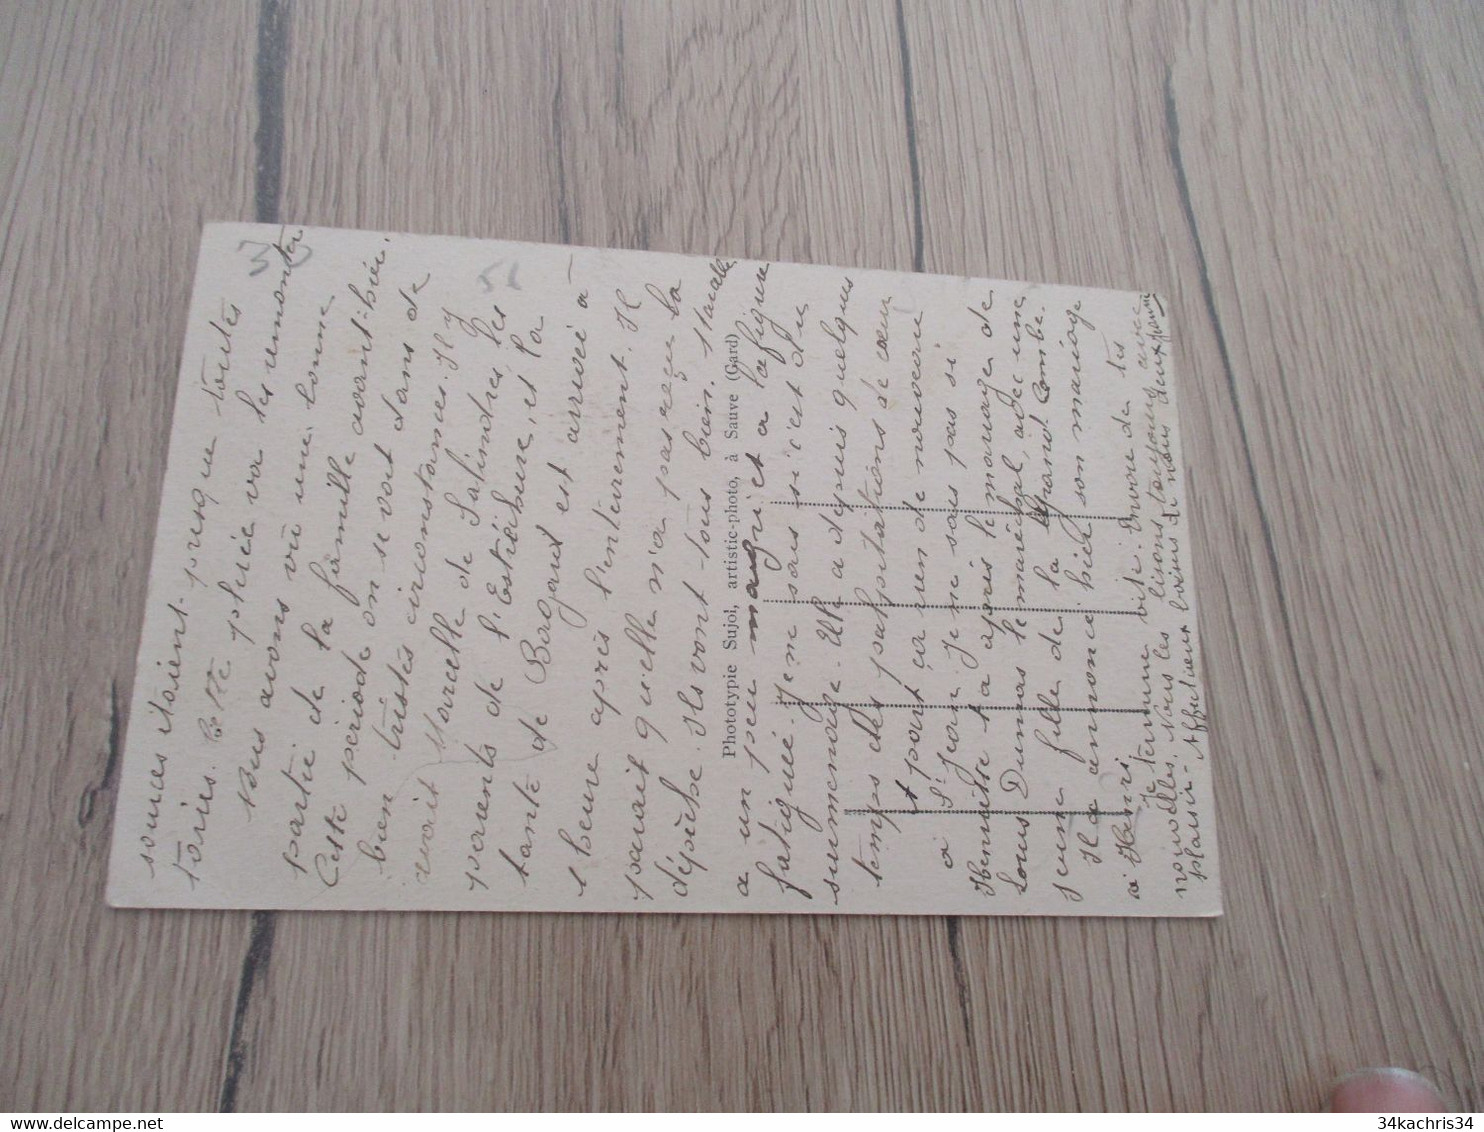 sources étaient presque toutes
taries. Cette pluie va les remonter
Nous avons vu une bonne
partie de la famille avant-hier,
Cette période on se voit dans de
bien tristes circonstances. Il y
avait Marcelle de Salindres, les
parents de l'Estréchure, et la
tante de Bagard est arrivée à
1 heure après l'enterrement. Il
parait qu'elle n'a pas reçu la
dépêche. Ils vont tous bien. Marcelle
Phototypie Sujol, artistic-photo, à Sauve (Gard)
a un peu maigri et a la figure
fatiguée. Je ne sais si c'est du
surmenage. Elle a depuis quelques
temps des palpitations de cœur
et part ça rien de nouveau
à St Jean. Je ne sais pas si
Henriette t'a appris le mariage de
Louis Dumas le maréchal, avec une
jeune fille de la Grand Combe.
Il a annoncé hier son mariage
à Henri
Je termine vite. Envoie de tes
nouvelles. Nous les lisons toujours avec
plaisir. Affectueux baisers de nous deux
33
51
34kachris34